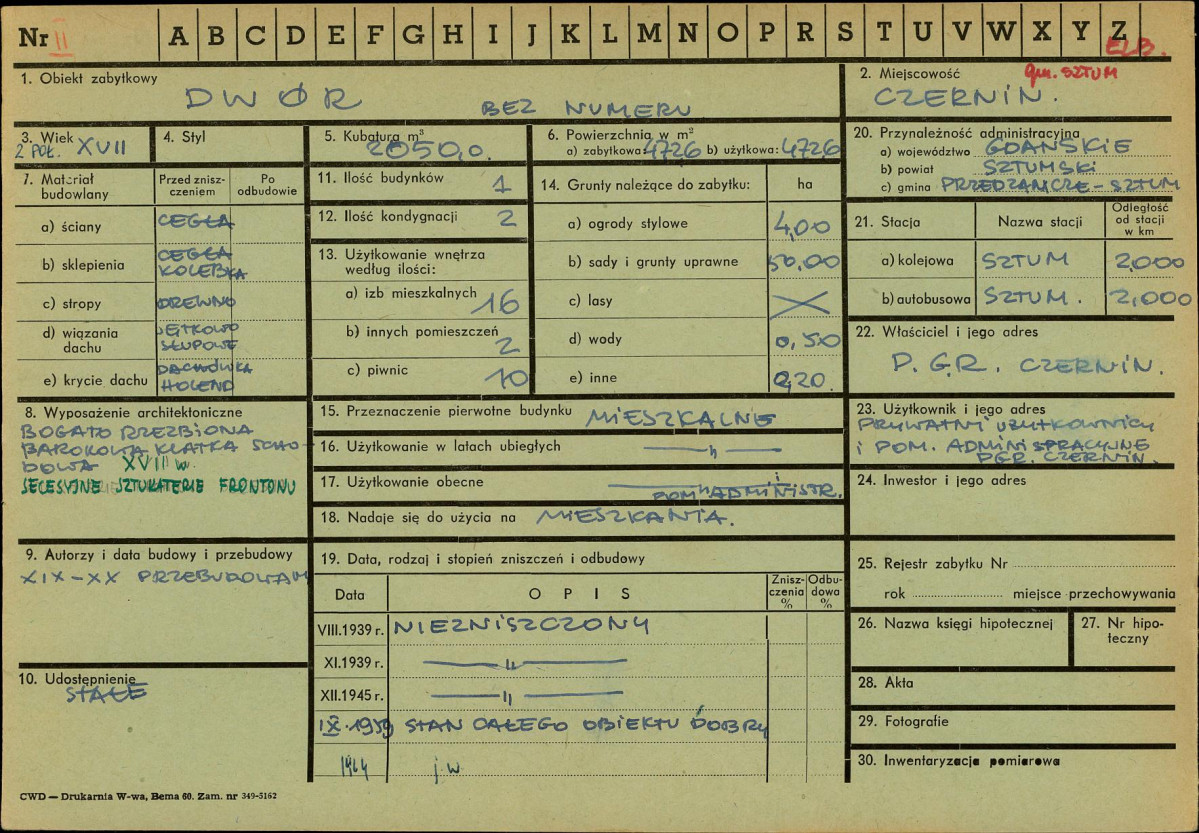 Nr II A B C D E F G H I J K L M N O P R S T U V W X Y Z
ELB.
1. Obiekt zabytkowy
DWÓR BEZ NUMERU
2. Miejscowość gm. SZTUM
CZERNIN.
3. Wiek
2 POŁ. XVII
4. Styl
5. Kubatura m³
2050,0.
6. Powierzchnia w m²
a) zabytkowa: 4726 b) użytkowa: 4726
7. Materiał budowlany
Przed znisz-
czeniem
Po
odbudowie
a) ściany CEGŁA
b) sklepienia CEGŁA
KOLEBKA
c) stropy DREWNO
d) wiązania
dachu
JĘTKOWO
SŁUPOWE
e) krycie dachu DACHÓWKA
HOLEND
8. Wyposażenie architektoniczne
BOGATO RZEZBIONA
BAROKOWA KLATKA SCHO-
DOWA XVIII w.
SECESYJNE SZTUKATERIE FRONTONU
9. Autorzy i data budowy i przebudowy
XIX-XX PRZEBUDOWAN
10. Udostępnienie
STAŁE
11. Ilość budynków 1
12. Ilość kondygnacji 2
13. Użytkowanie wnętrza
według ilości:
a) izb mieszkalnych 16
b) innych pomieszczeń 2
c) piwnic 10
14. Grunty należące do zabytku: ha
a) ogrody stylowe 4,00
b) sady i grunty uprawne 50,00
c) lasy
d) wody 0,50
e) inne 0,20.
15. Przeznaczenie pierwotne budynku MIESZKALNE
16. Użytkowanie w latach ubiegłych — " —
17. Użytkowanie obecne — " —
i POM. ADMINISTR.
18. Nadaje się do użycia na MIESZKANIA.
19. Data, rodzaj i stopień zniszczeń i odbudowy
Data OPIS
Znisz-
czenia
%
Odbu-
dowa
%
VIII.1939 r. NIEZNISZCZONY
XI.1939 r. — " —
XII.1945 r. — " —
IX.1959 STAN CAŁEGO OBIEKTU DOBRY
1964 j.w
20. Przynależność administracyjna
a) województwo GDAŃSKIE
b) powiat SZTUMSKI
c) gmina PRZEDZAMCZE-SZTUM
21. Stacja Nazwa stacji
Odległość
od stacji
w km
a) kolejowa SZTUM 2,000
b) autobusowa SZTUM. 2,000
22. Właściciel i jego adres
P.G.R. CZERNIN.
23. Użytkownik i jego adres
PRYWATNI UŻYTKOWNICY
i POM. ADMINISPRACYJNE
PGR. CZERNIN.
24. Inwestor i jego adres
25. Rejestr zabytku Nr
rok miejsce przechowywania
26. Nazwa księgi hipotecznej
27. Nr hipo-
teczny
28. Akta
29. Fotografie
30. Inwentaryzacja pomiarowa
CWD — Drukarnia W-wa, Bema 60. Zam. nr 349-5162